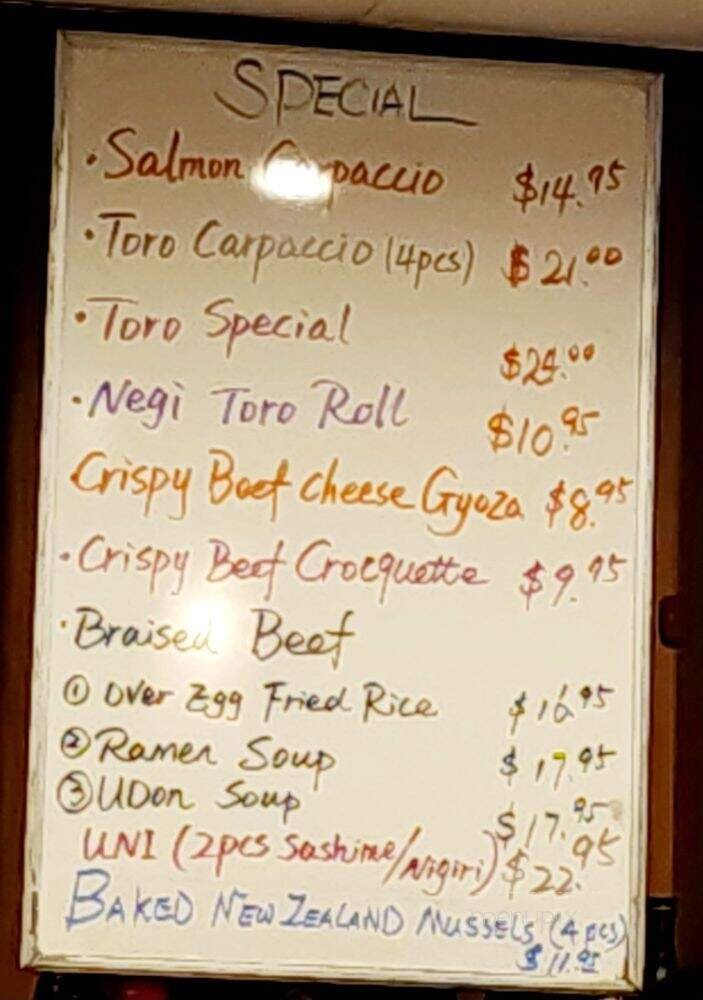 SPECIAL
• Salmon Carpaccio $14.95
• Toro Carpaccio (4pcs) $21.00
• Toro Special
• Negi Toro Roll $10.95
Crispy Beef cheese Gyoza $8.95
• Crispy Beef Crocquette $9.95
• Braised Beef
① Over Egg Fried Rice $16.95
② Ramen Soup $17.95
③ UDon Soup $17.95
UNI (2pcs Sashime/Nigiri) $22.95
BAKED NEW ZEALAND MUSSELS (4 pcs)
$11.95